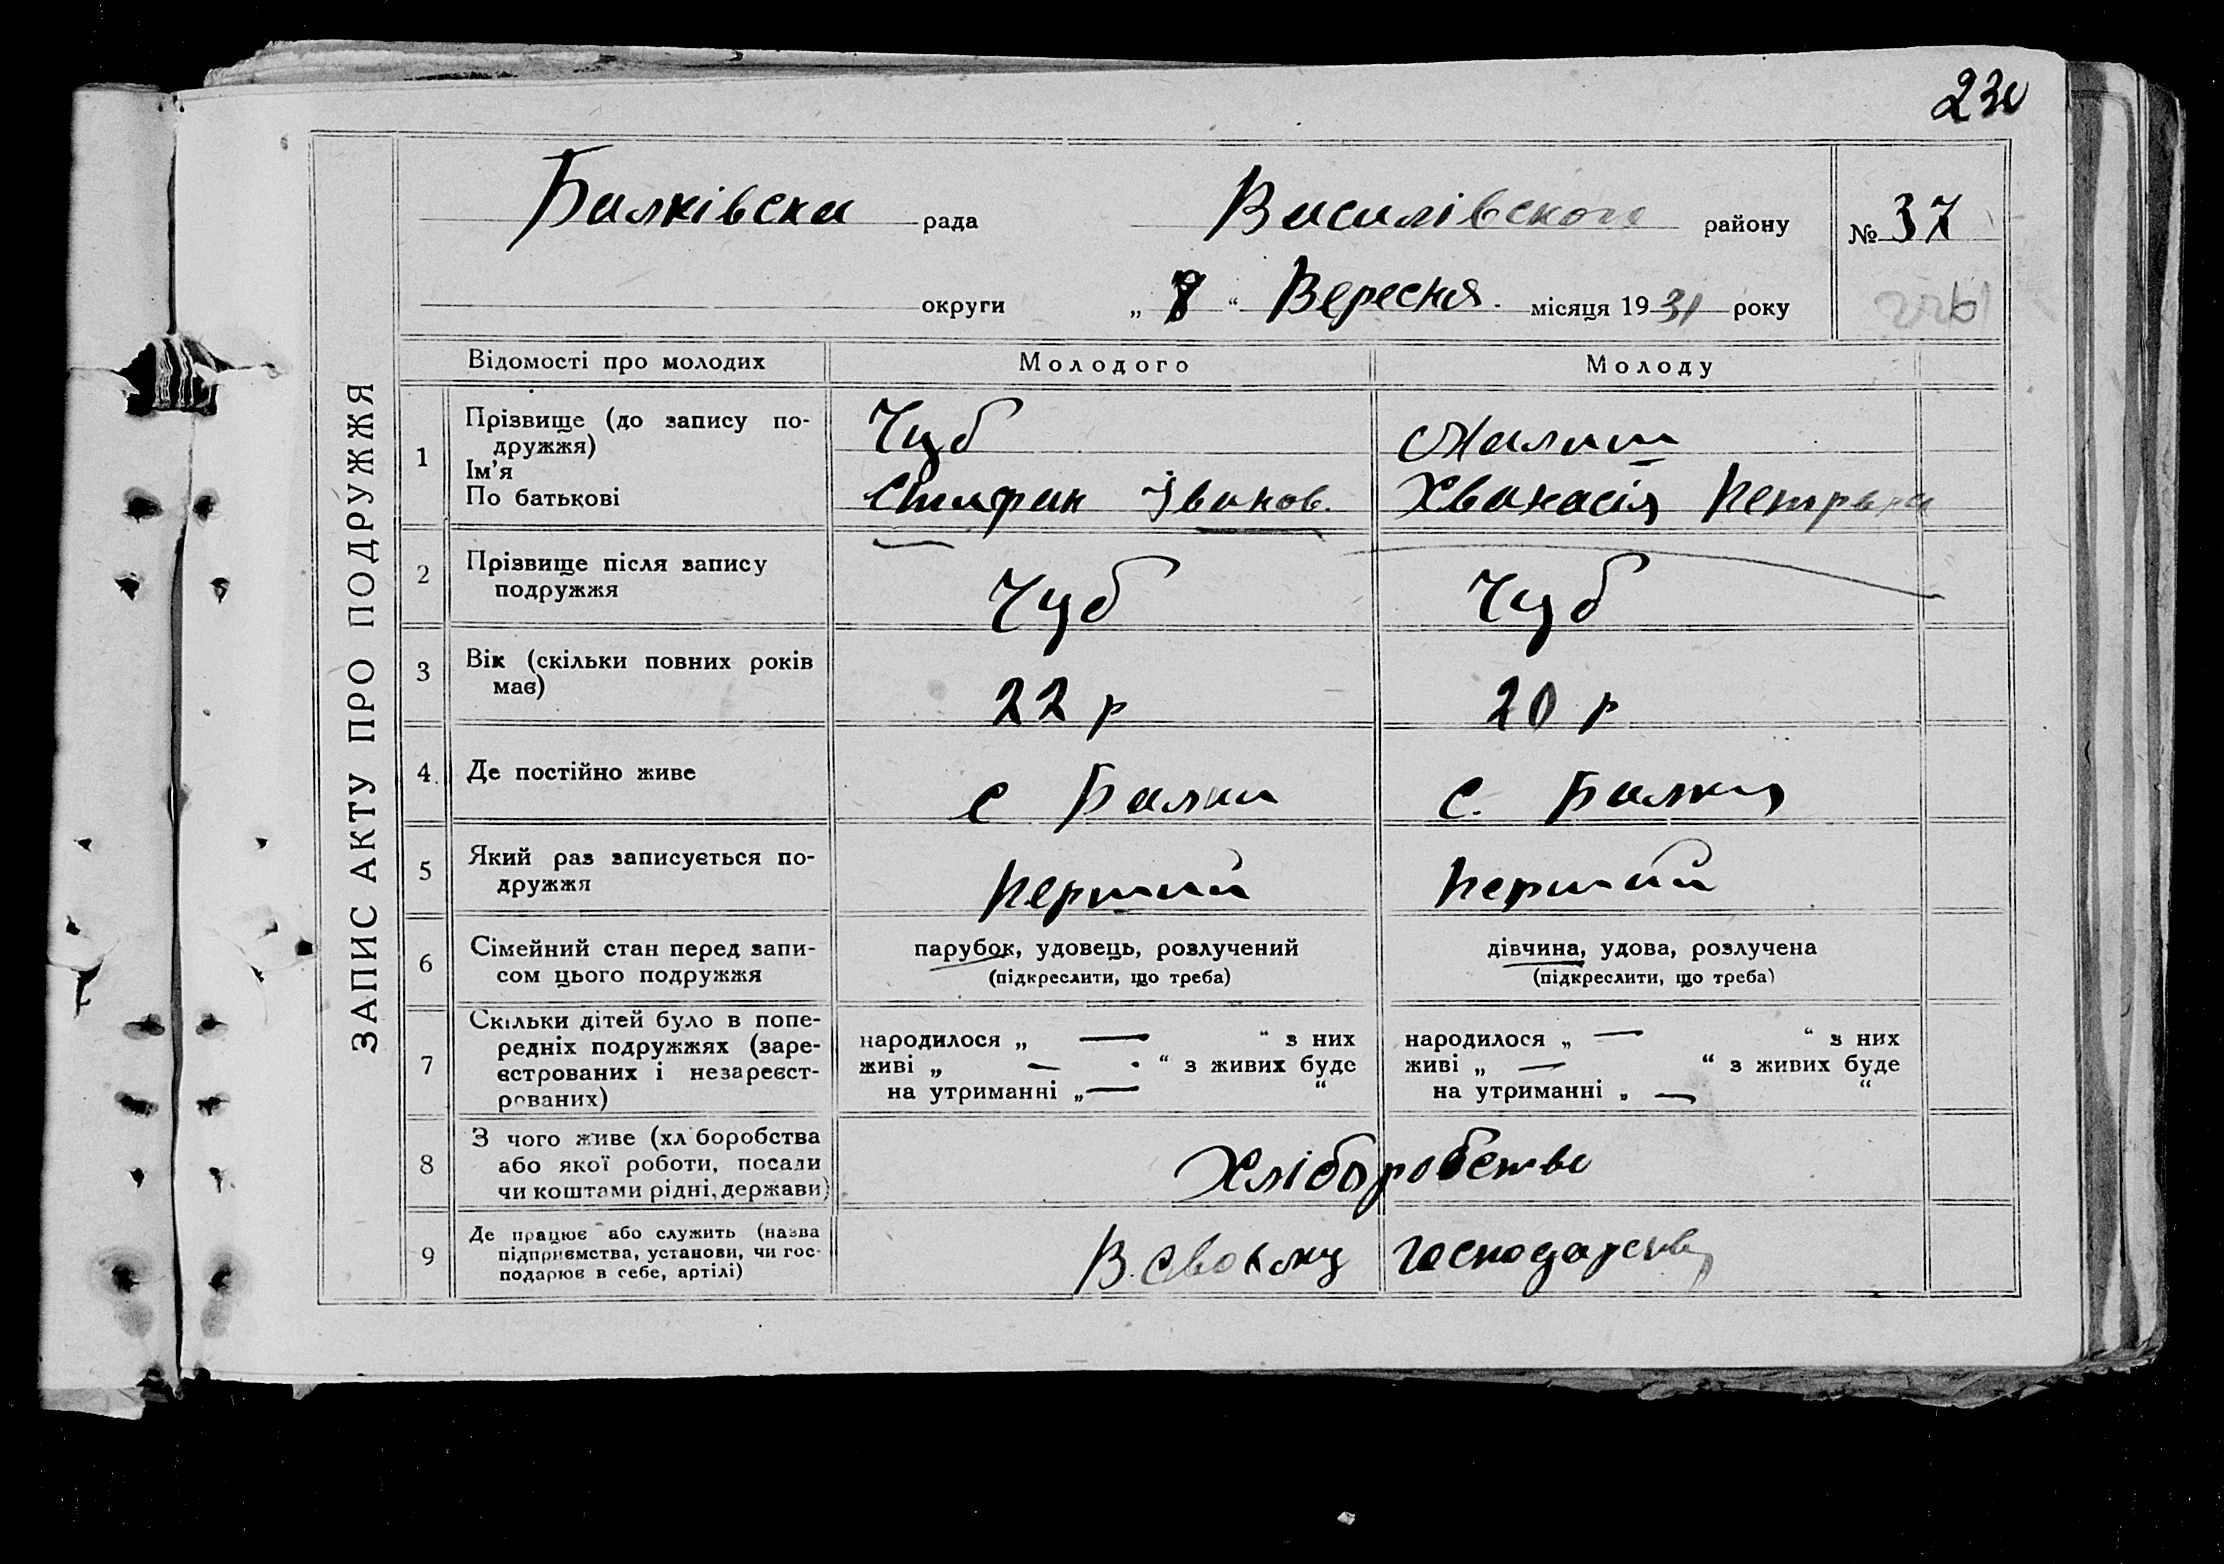 230
Балківска рада Василівского району № 37
округи „ 8 “ Вересня місяця 1931 року
ЗАПИС АКТУ ПРО ПОДРУЖЖЯ
Відомості про молодих Молодого Молоду
1 Прізвище (до запису по-
дружжя)
Ім’я
По батькові
Чуб
Стифан Іванов.
Малиш
Хванасія Петрвна
2 Прізвище після запису
подружжя
Чуб Чуб
3 Вік (скільки повних років
має)
22 р 20 р
4 Де постійно живе
с Балки с. Балки
5 Який раз записується по-
дружжя
перший перший
6 Сімейний стан перед запи-
сом цього подружжя
парубок, удовець, розлучений
(підкреслити, що треба)
дівчина, удова, розлучена
(підкреслити, що треба)
7 Скільки дітей було в попе-
редніх подружжях (заре-
єстрованих і незареєст-
рованих)
народилося „ — “ з них
живі „ — “ з живих буде
на утриманні „ — “
народилося „ — “ з них
живі „ — “ з живих буде
на утриманні „ — “
8 З чого живе (хл боробства
або якої роботи, посади
чи коштами рідні, держави)
Хлiборобство
9 Де працює або служить (назва
підприємства, установи, чи гос-
подарює в себе, артілі)
В. своєму господарству